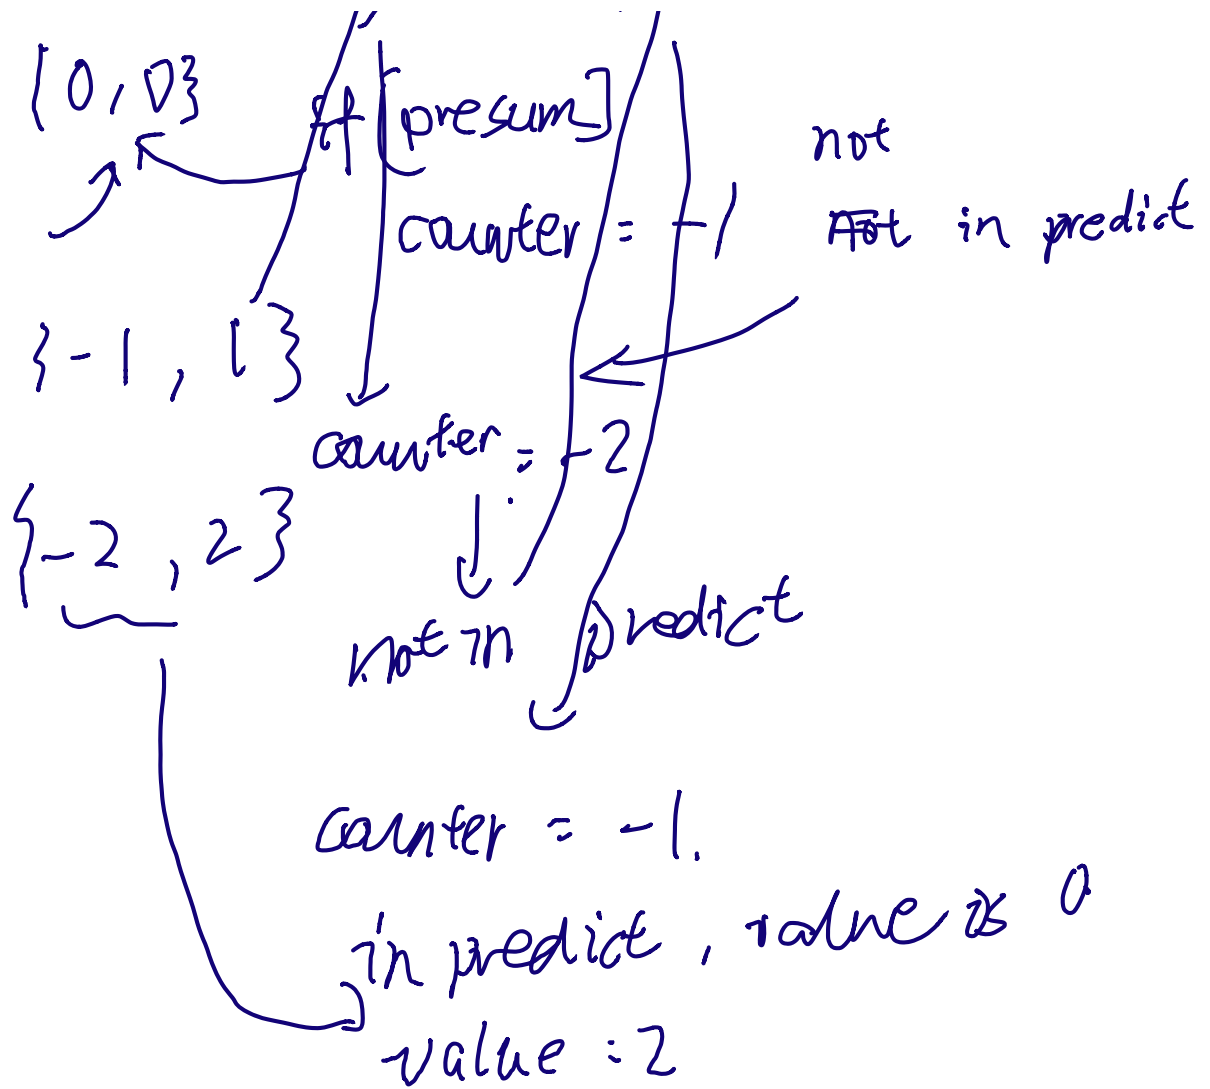 {0, 0}
if [presum]
not
counter = -1
not in predict
{-1, 1}
counter = -2
{-2, 2}
not in predict
counter = -1.
in predict, value is 0
value = 2